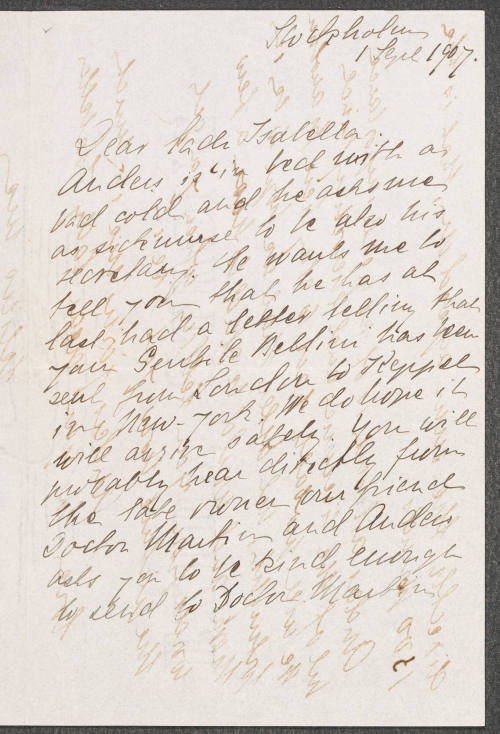 Stockholm
1 Sept 1907.
Dear Lady Isabella.
Anders is in bed with a
bad cold and he asks me
as sicknurse to be also his
secretary. He wants me to
tell you that he has at
last had a letter telling that
your Gentile Bellini has been
sent from London to Keppel
in New-York. We do hope it
will arrive safely. You will
probably hear directly from
the late owner our friend
Doctor Martin and Anders
asks you to be kind enough
to send to Doctor Martin